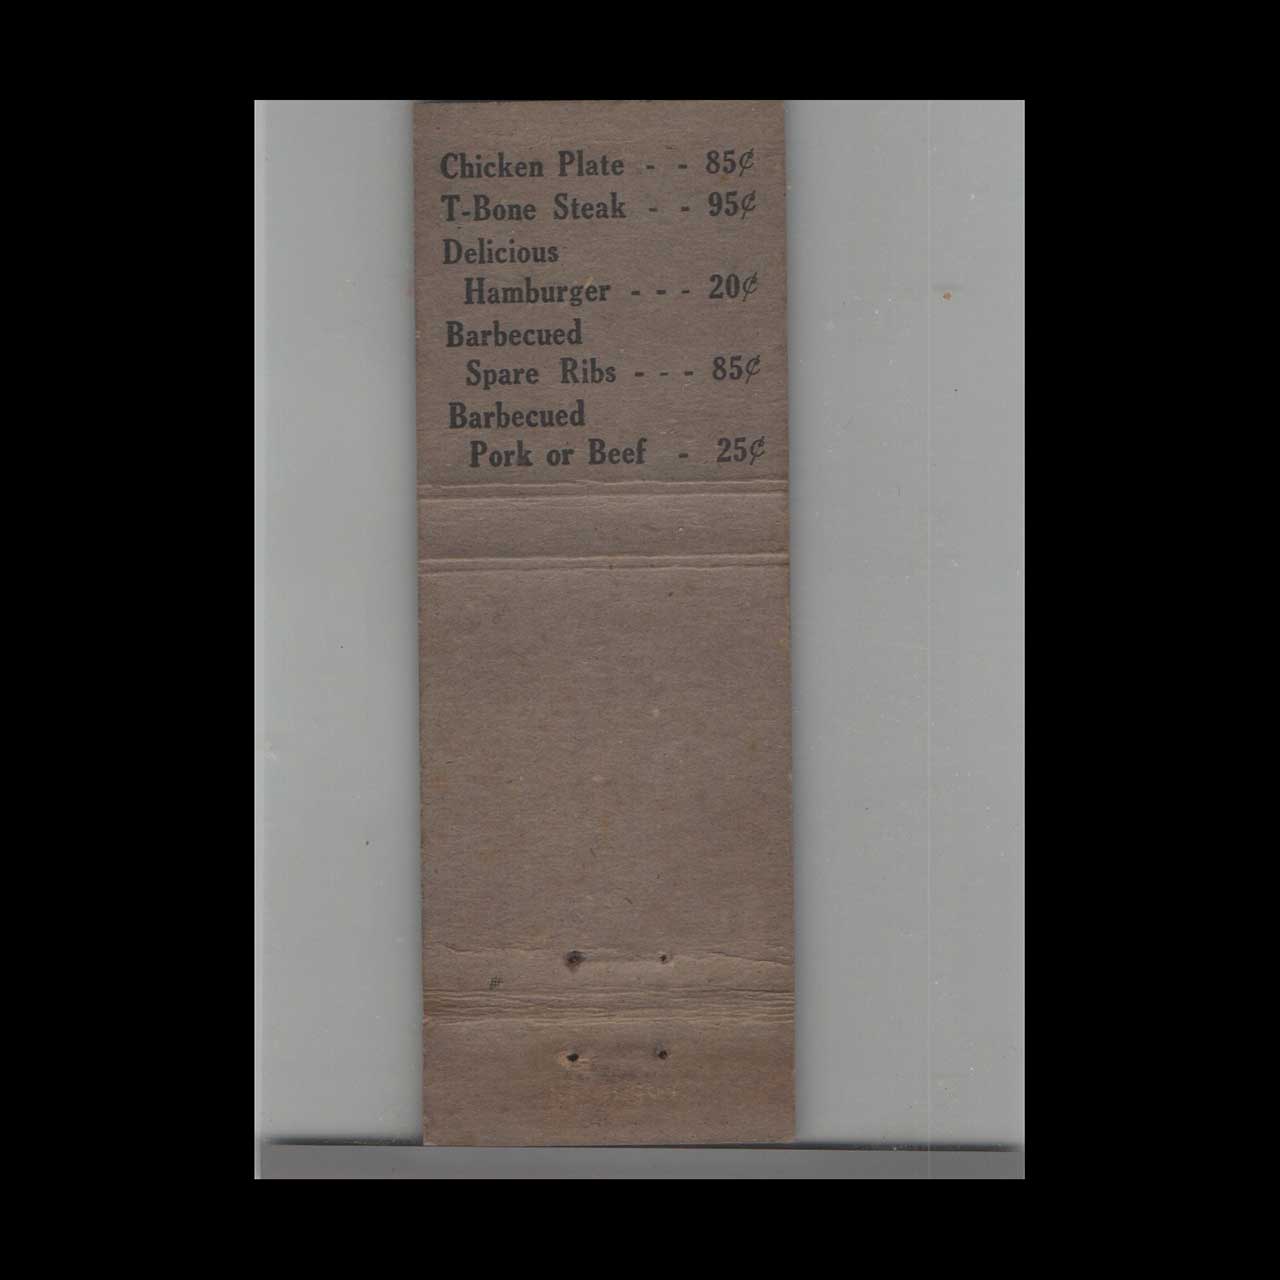 Chicken Plate - - 85¢
T-Bone Steak - - 95¢
Delicious
Hamburger - - - 20¢
Barbecued
Spare Ribs - - - 85¢
Barbecued
Pork or Beef - 25¢